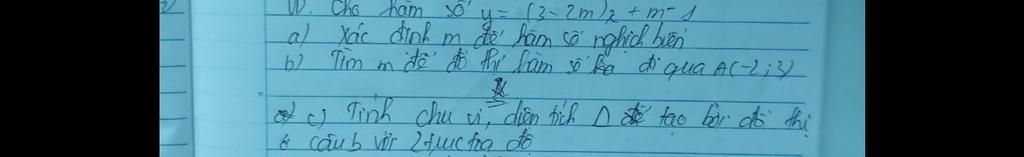 Cho hàm số y = (3-2m)x + m-1
a) Xác định m để hàm số nghịch biến
b) Tìm m để đồ thị hàm số đi qua A(-2;3)
c) Tính chu vi, diện tích Δ tạo bởi đồ thị
ở câu b với 2 trục tọa độ